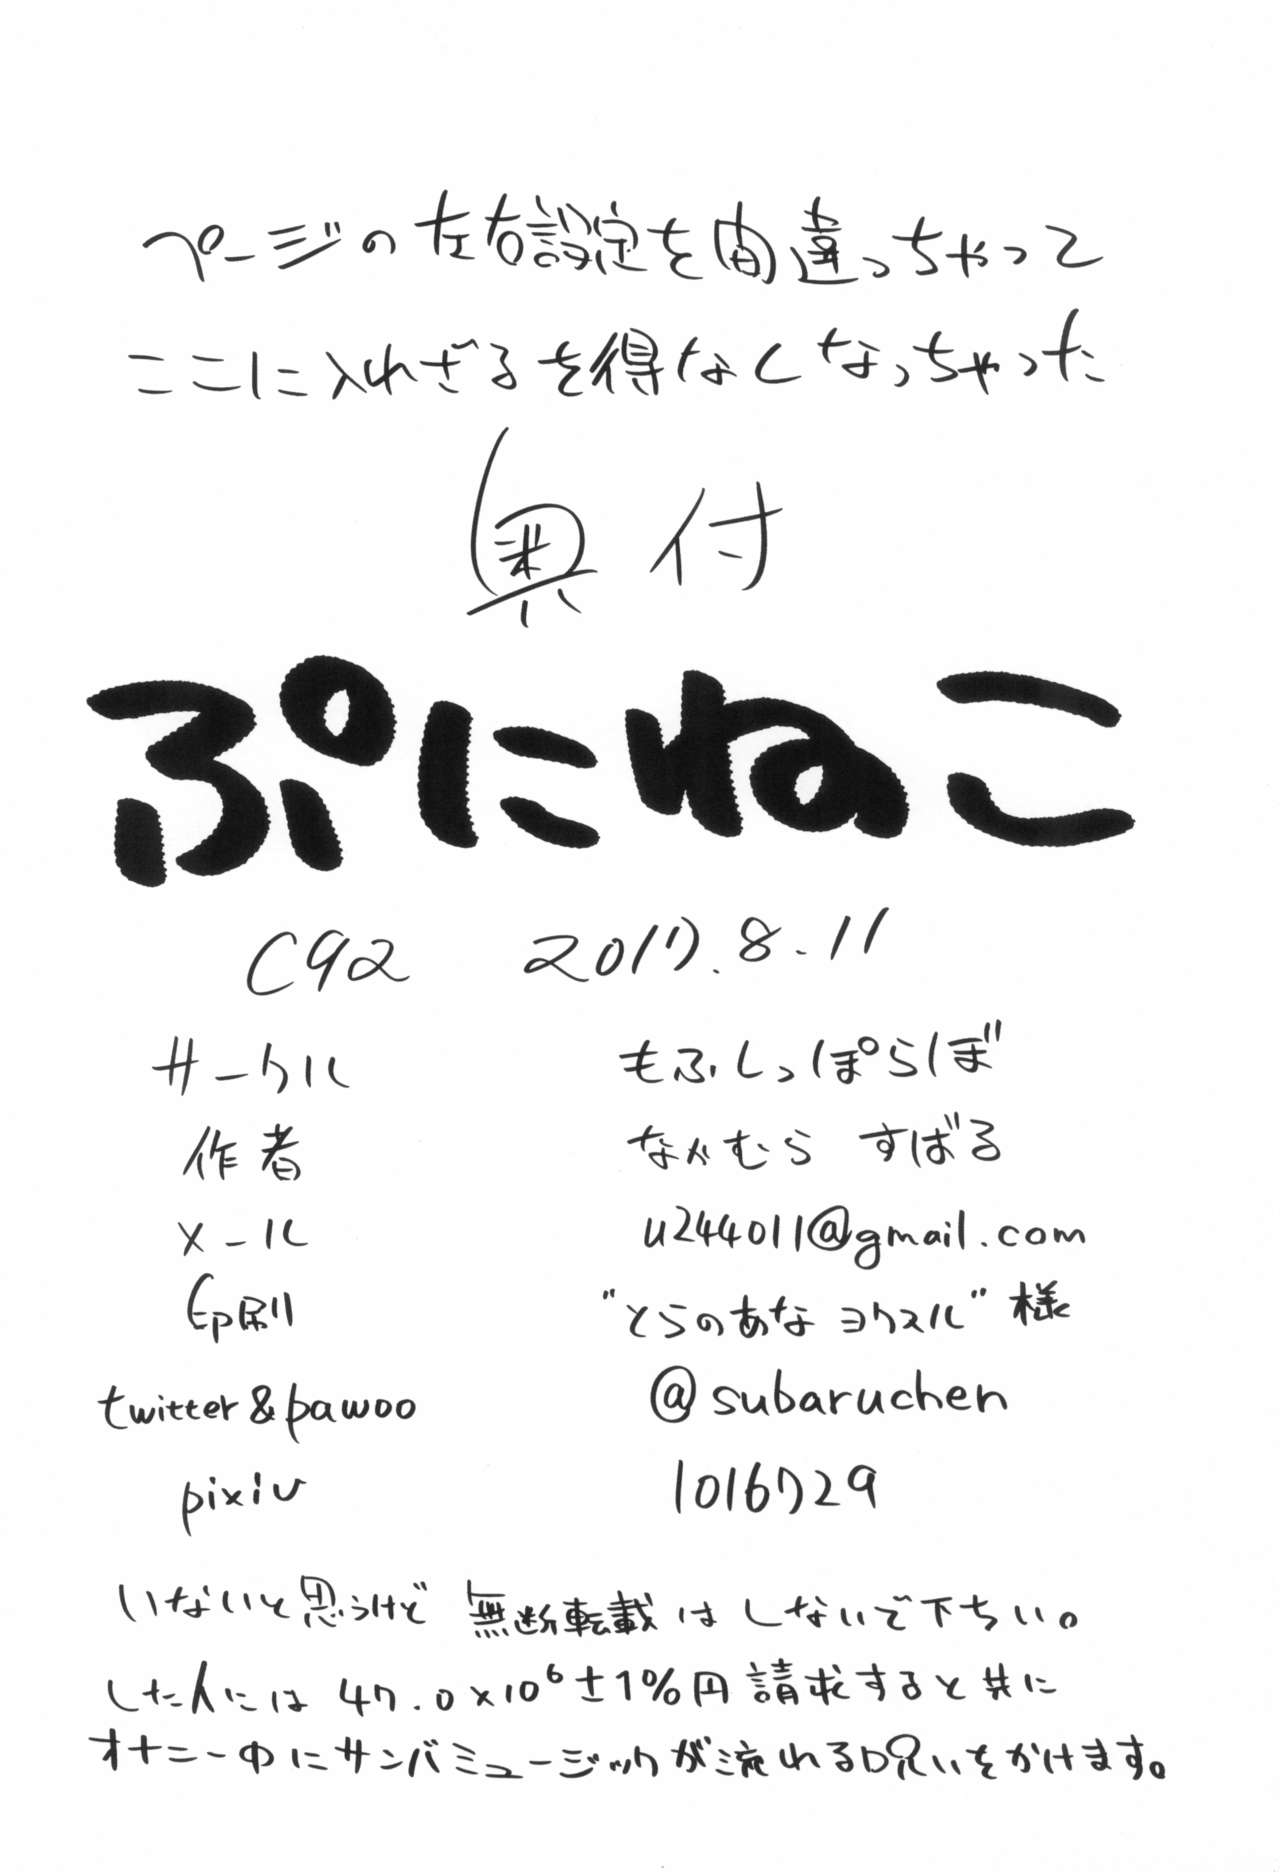 ページの左右設定を間違っちゃって
ここに入れざるを得なくなっちゃった
奥付
ぷにねこ
C92 2017.8.11
サークル もふしっぽらぼ
作者 なかむら すばる
メール u244011@gmail.com
印刷 "とらのあな ヨクスル"様
twitter&pawoo @subaruchen
pixiv 1016729
いないと思うけど 無断転載はしないで下ちい。
した人には 47.0×10⁶±1%円 請求すると共に
オナニー中にサンバミュージックが流れる呪いをかけます。